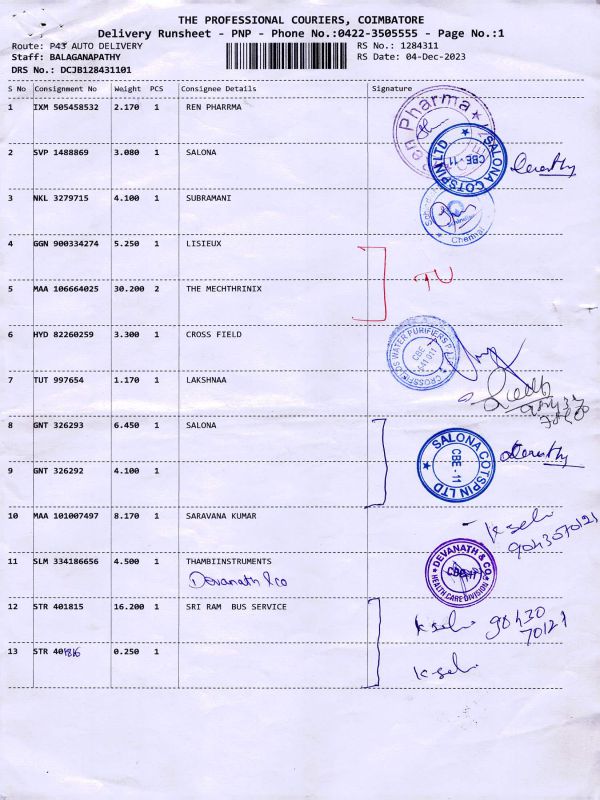 THE PROFESSIONAL COURIERS, COIMBATORE
Delivery Runsheet - PNP - Phone No.:0422-3505555 - Page No.:1
Route: P43 AUTO DELIVERY RS No.: 1284311
Staff: BALAGANAPATHY RS Date: 04-Dec-2023
DRS No.: DCJB128431101
S No Consignment No Weight PCS Consignee Details Signature
1 IXM 505458532 2.170 1 REN PHARRMA
Pharma
2 SVP 1488869 3.080 1 SALONA
SALONA COTSPIN LTD
CBE-11
3 NKL 3279715 4.100 1 SUBRAMANI
Chennai
4 GGN 900334274 5.250 1 LISIEUX
5 MAA 106664025 30.200 2 THE MECHTHRINIX
TU
6 HYD 82260259 3.300 1 CROSS FIELD
CROSSFIELDS WATER PURIFIERS
CBE
7 TUT 997654 1.170 1 LAKSHNAA
8 GNT 326293 6.450 1 SALONA
SALONA COTSPIN LTD
CBE-11
9 GNT 326292 4.100 1
10 MAA 101007497 8.170 1 SARAVANA KUMAR
9043070121
11 SLM 334186656 4.500 1 THAMBIINSTRUMENTS
Devanath & co
DEVANATH & CO
HEALTH CARE DIVISION
12 STR 401815 16.200 1 SRI RAM BUS SERVICE
90430
70121
13 STR 401816 0.250 1